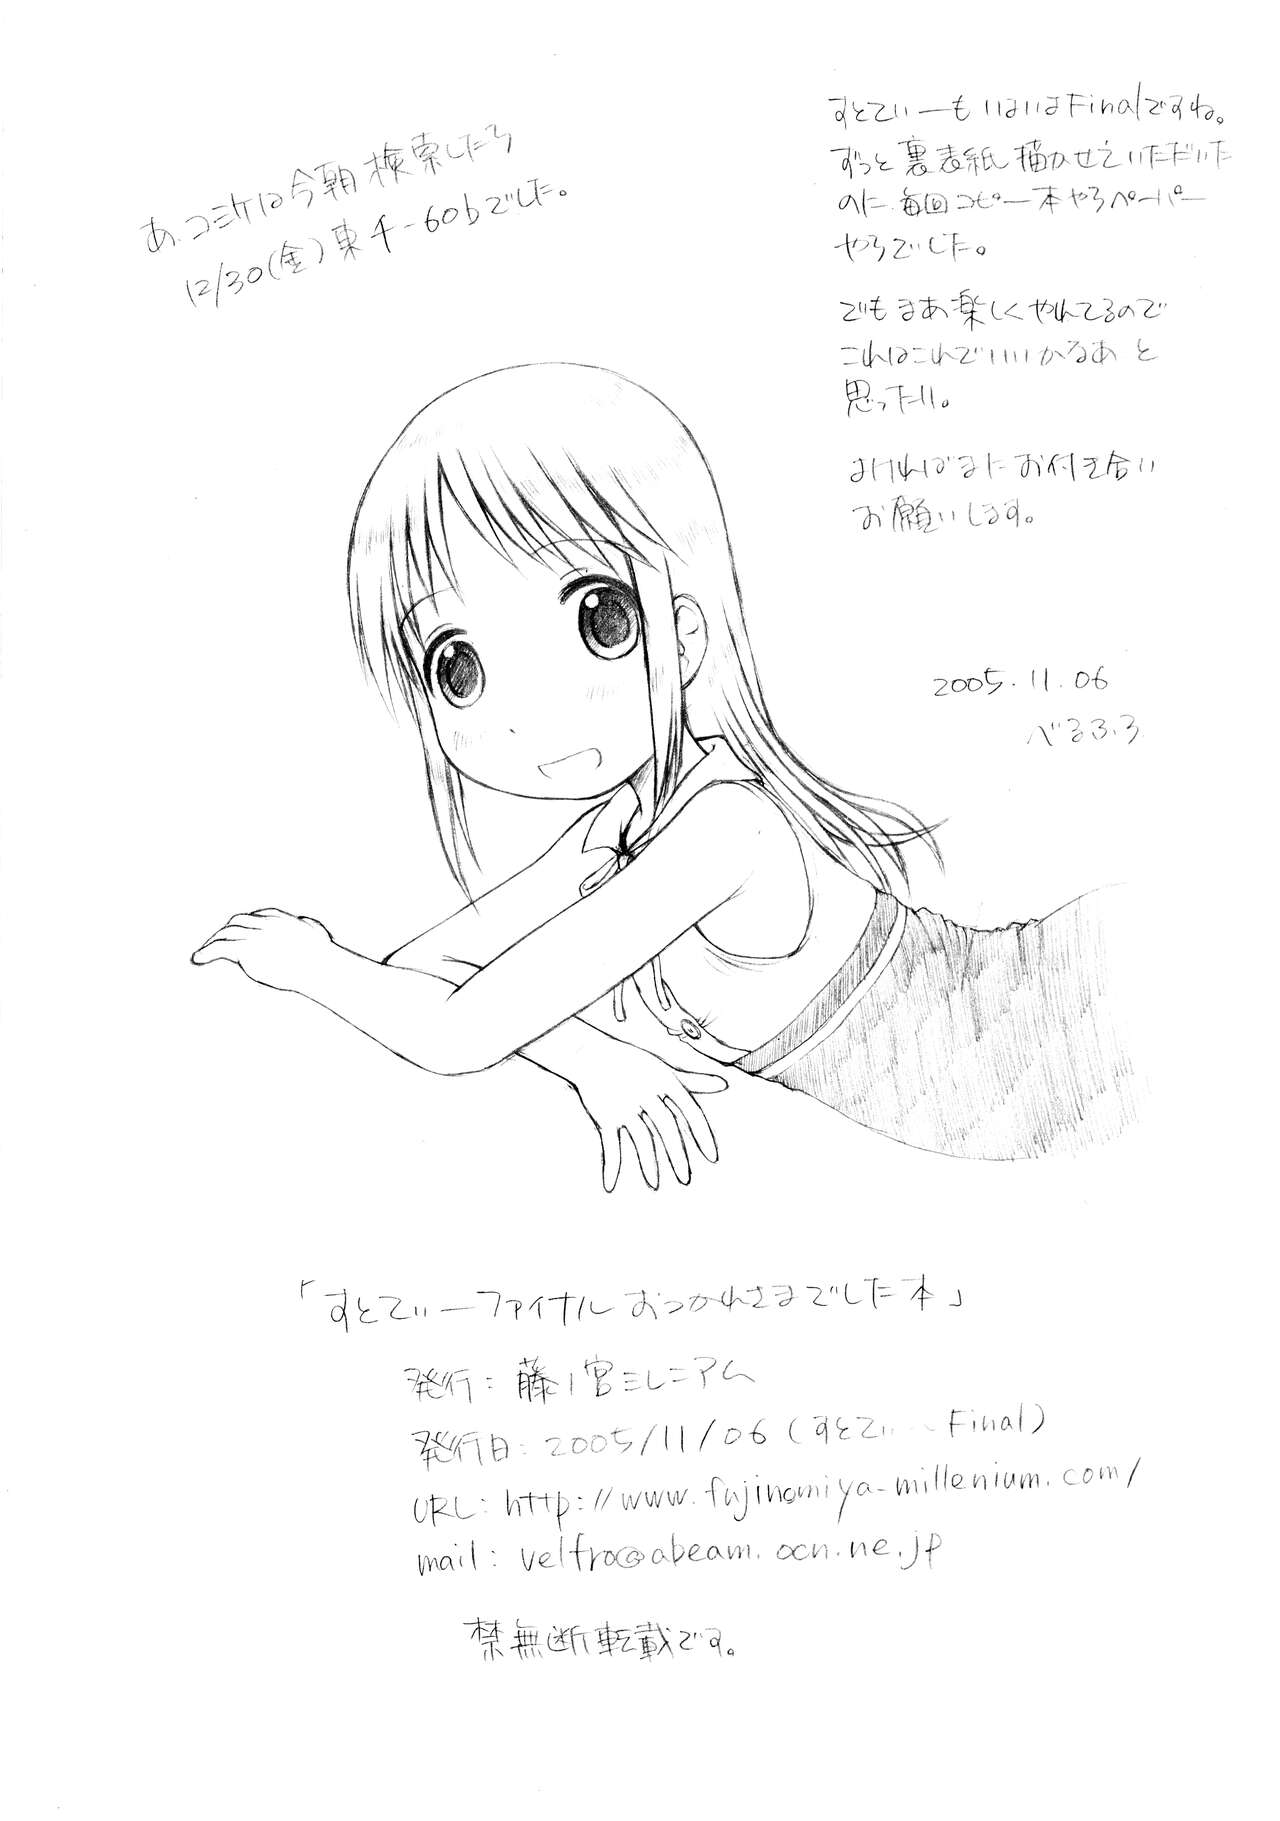 すとてぃーもいよいよFinalですね。
ずっと裏表紙描かせていただいた
のに毎回コピー本やらペーパー
やらでした。
でもまあ楽しくやれてるので
これはこれでいいかなあと
思ったり。
よければまたお付き合い
お願いします。
2005.11.06
べるふろ
あ、コミケは今朝検索したら
12/30(金)東チ-60bでした。
「すとてぃーファイナルおつかれさまでした本」
発行:藤ノ宮ミレニアム
発行日:2005/11/06(すとてぃーFinal)
URL:http://www.fujinomiya-millenium.com/
mail:velfro@abeam.ocn.ne.jp
禁無断転載です。